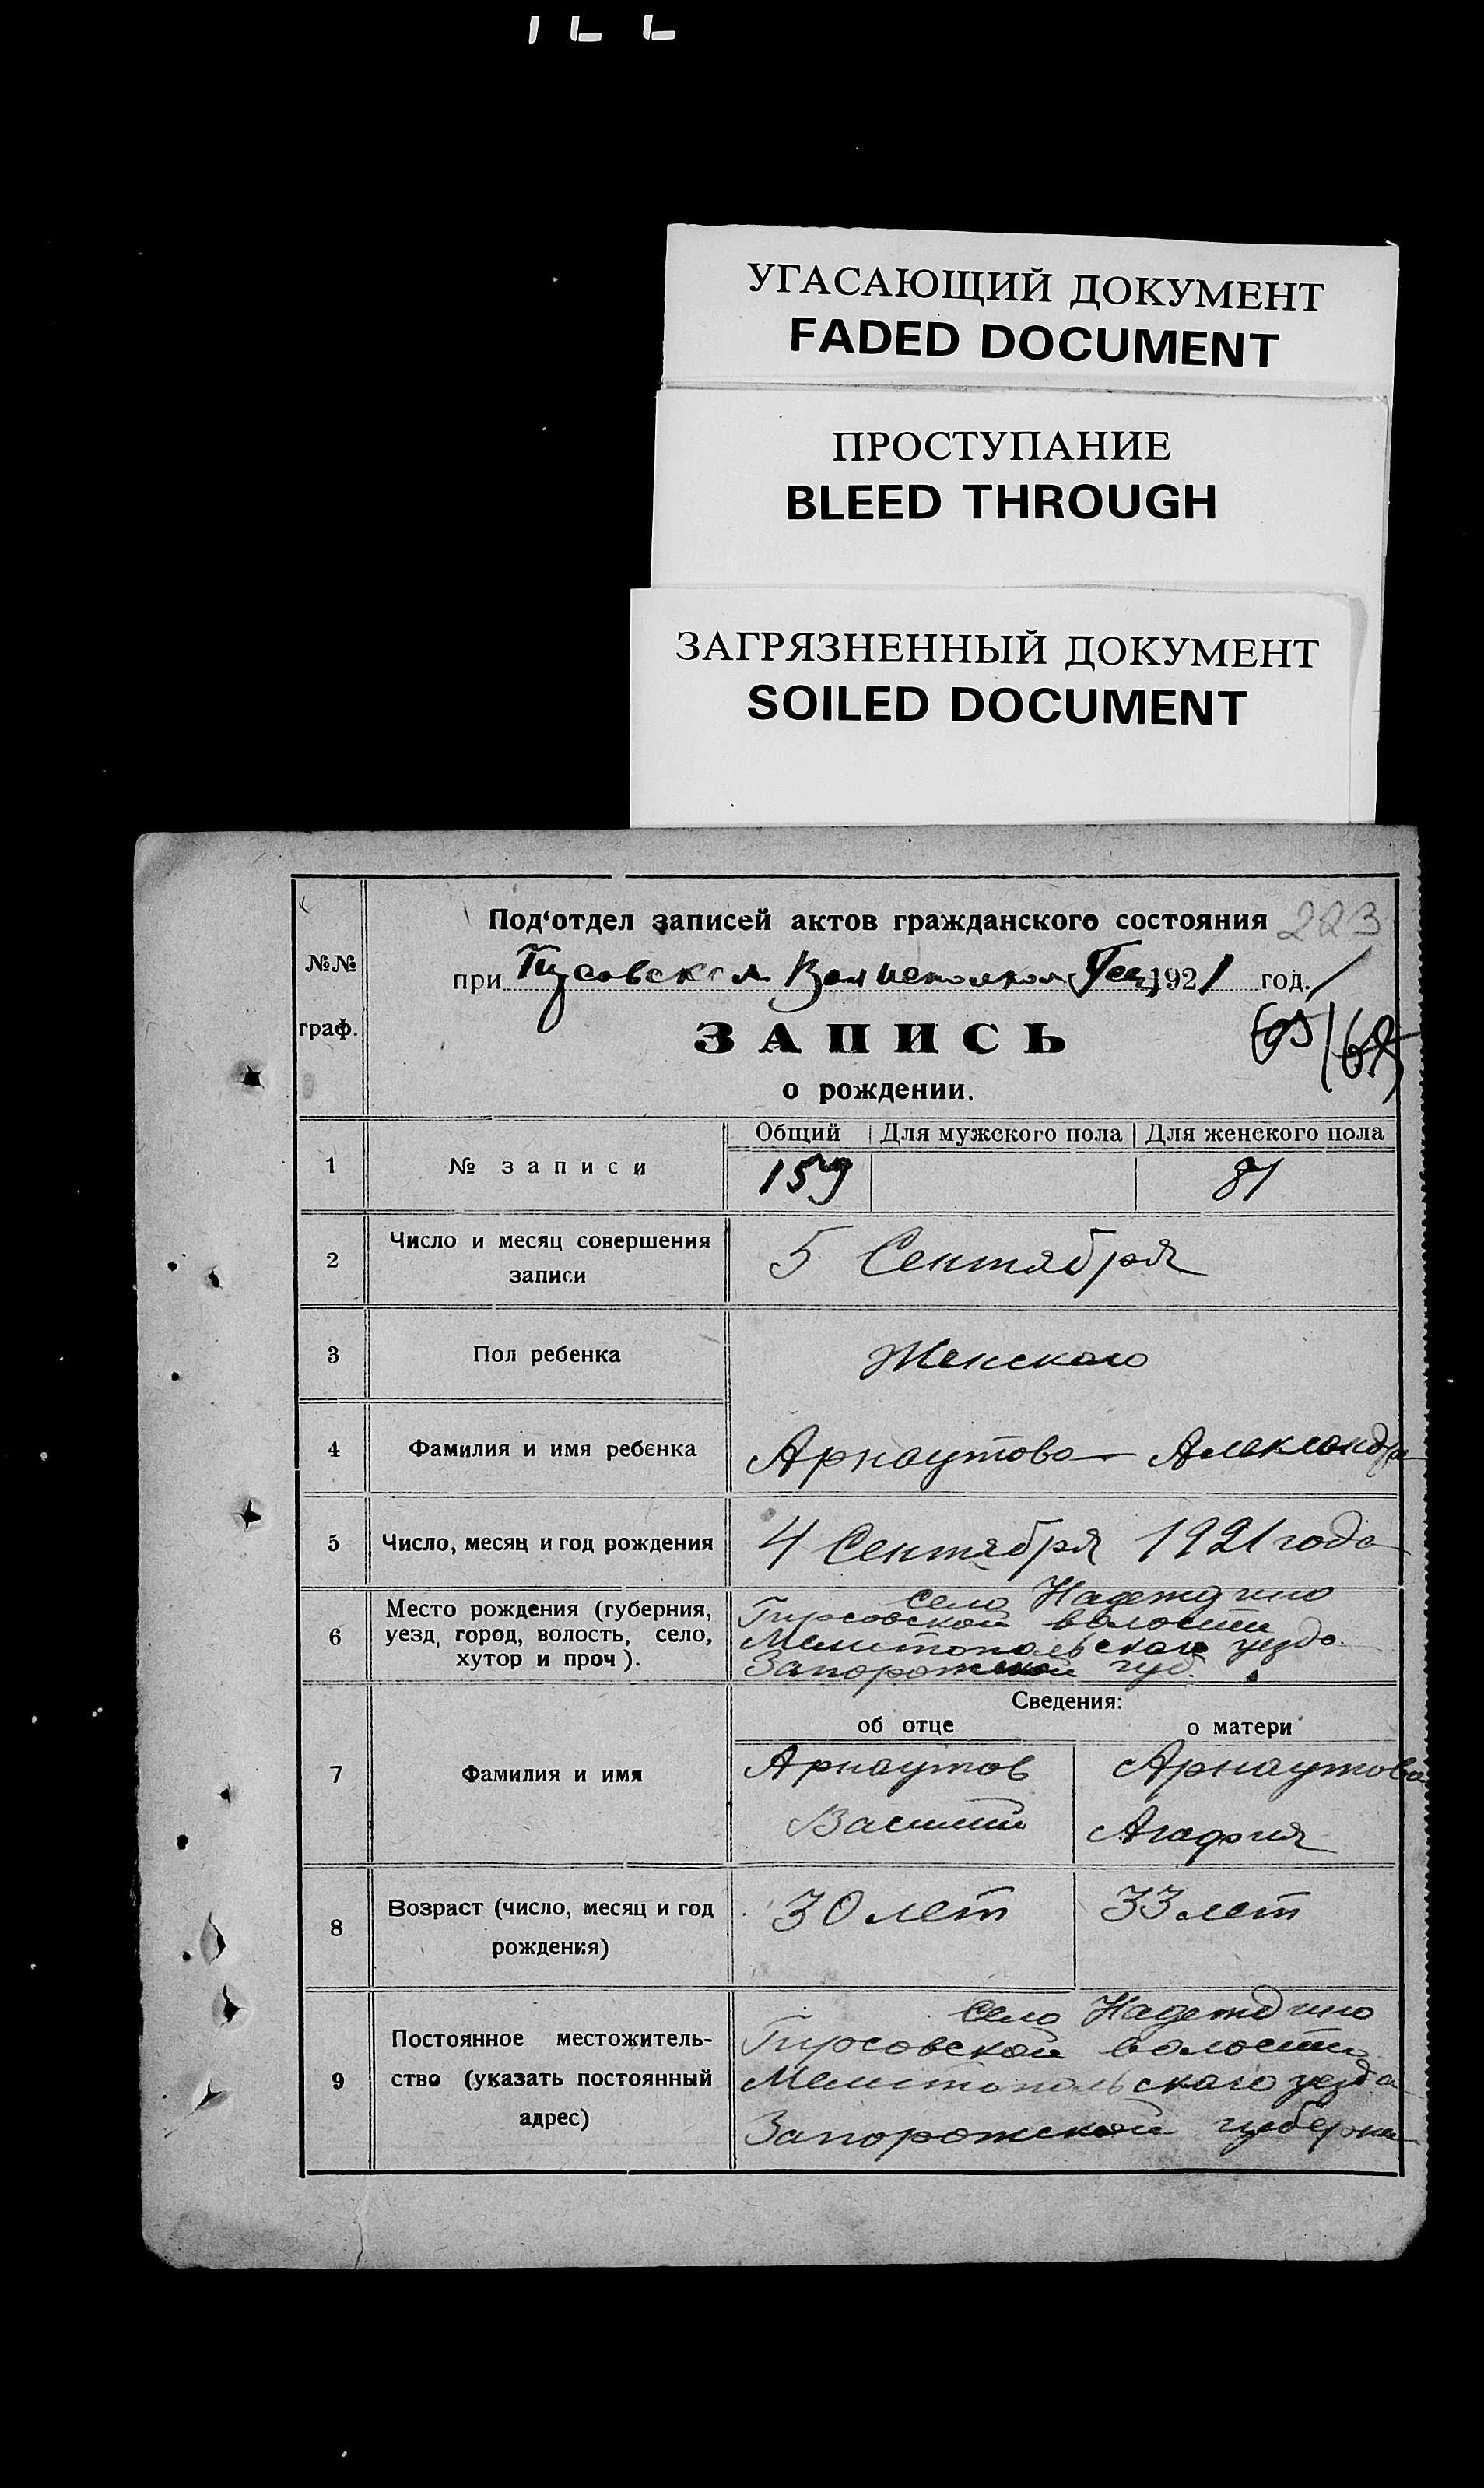 УГАСАЮЩИЙ ДОКУМЕНТ
FADED DOCUMENT
ПРОСТУПАНИЕ
BLEED THROUGH
ЗАГРЯЗНЕННЫЙ ДОКУМЕНТ
SOILED DOCUMENT
№№
граф.
Под‘отдел записей актов гражданского состояния 223
при 1921 год.
ЗАПИСЬ
о рождении.
Общий Для мужского пола Для женского пола
1 № записи 159 81
2 Число и месяц совершения
записи
5 Сентября
3 Пол ребенка Женского
4 Фамилия и имя ребенка Арнаутова Александра
5 Число, месяц и год рождения 4 Сентября 1921 года
6 Место рождения (губерния,
уезд, город, волость, село,
хутор и проч).
село Надеждино
Гирсовской волости
Мелитопольского уезда
Запорожской губ.
Сведения:
об отце о матери
7 Фамилия и имя
Арнаутов
Василий
Арнаутова
Агафия
8 Возраст (число, месяц и год
рождения)
30 лет 33 лет
9 Постоянное местожитель-
ство (указать постоянный
адрес)
село Надеждино
Гирсовской волости
Мелитопольского уезда
Запорожской губерни